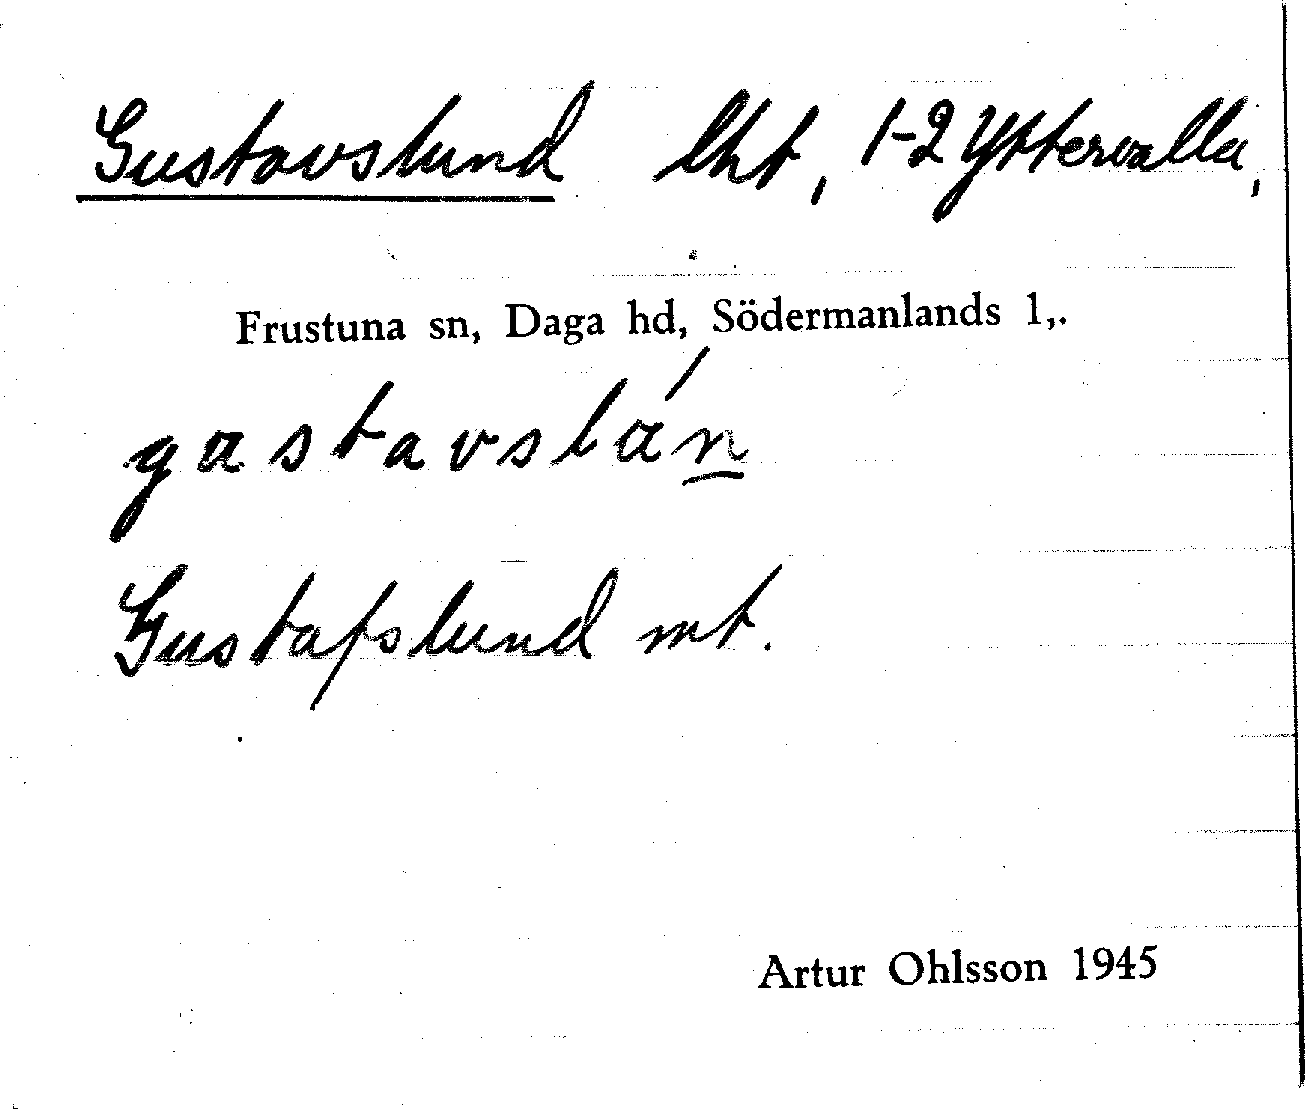 Gustavslund lht, 1-2 Yttervalla,
Frustuna sn, Daga hd, Södermanlands l,.
gastavslán
Gustafslund mt.
Artur Ohlsson 1945